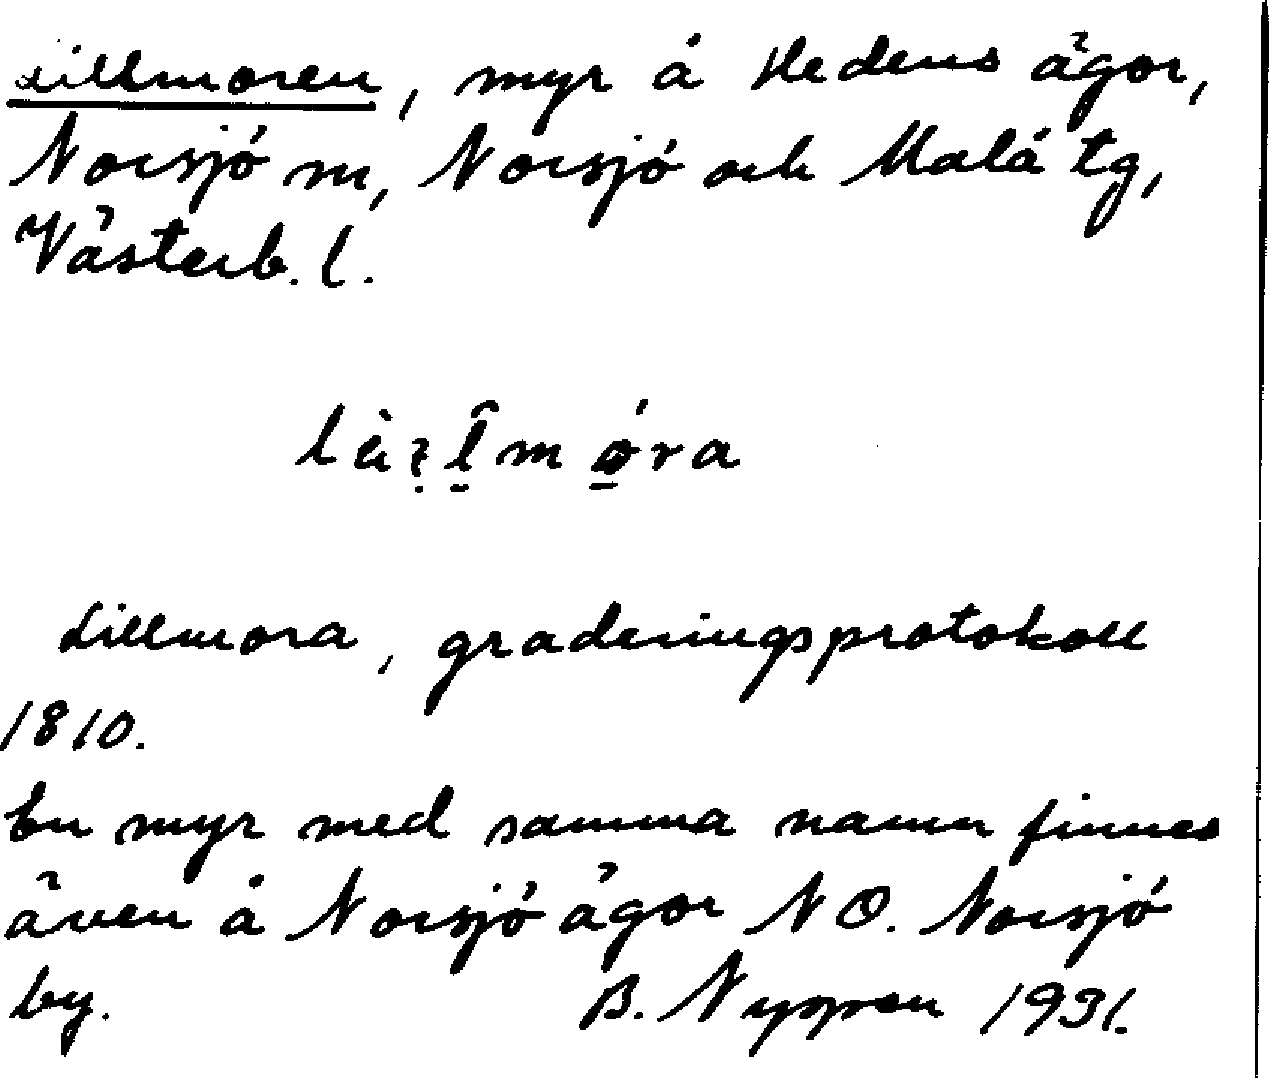 Lillmoren, myr å Hedens ägor,
Norsjö sn, Norsjö och Malå tg,
Västerb. l.
Lillmora, graderingsprotokoll
1810.
En myr med samma namn finnes
även å Norsjö ägor NO. Norsjö
by. B. 1931.